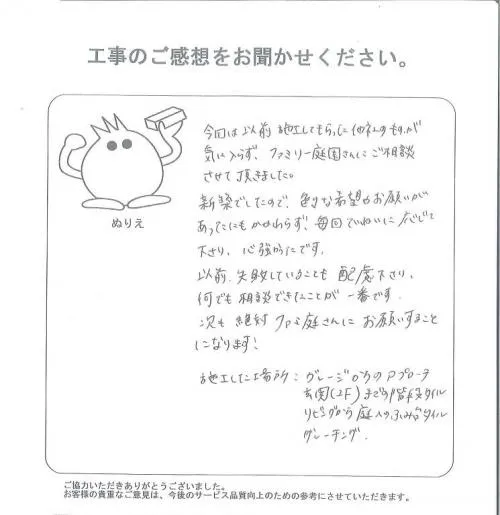 工事のご感想をお聞かせください。
ぬりえ
今回は以前施工してもらった他社のものが
気に入らず、ファミリー庭園さんにご相談
させて頂きました。
新築でしたので、色々な希望やお願いが
あったにもかかわらず、毎回ていねいに応じて
下さり、心強かたです。
以前、失敗していることも配慮下さり、
何でも相談できたことが一番です。
次も絶対ファミ庭さんにお願いすること
になります!
施工した場所:ガレージからのアプローチ
玄関(2F)までの階段タイル
リビングから庭へのふみ台タイル
グレーチング.
ご協力いただきありがとうございました。
お客様の貴重なご意見は、今後のサービス品質向上のための参考にさせていただきます。